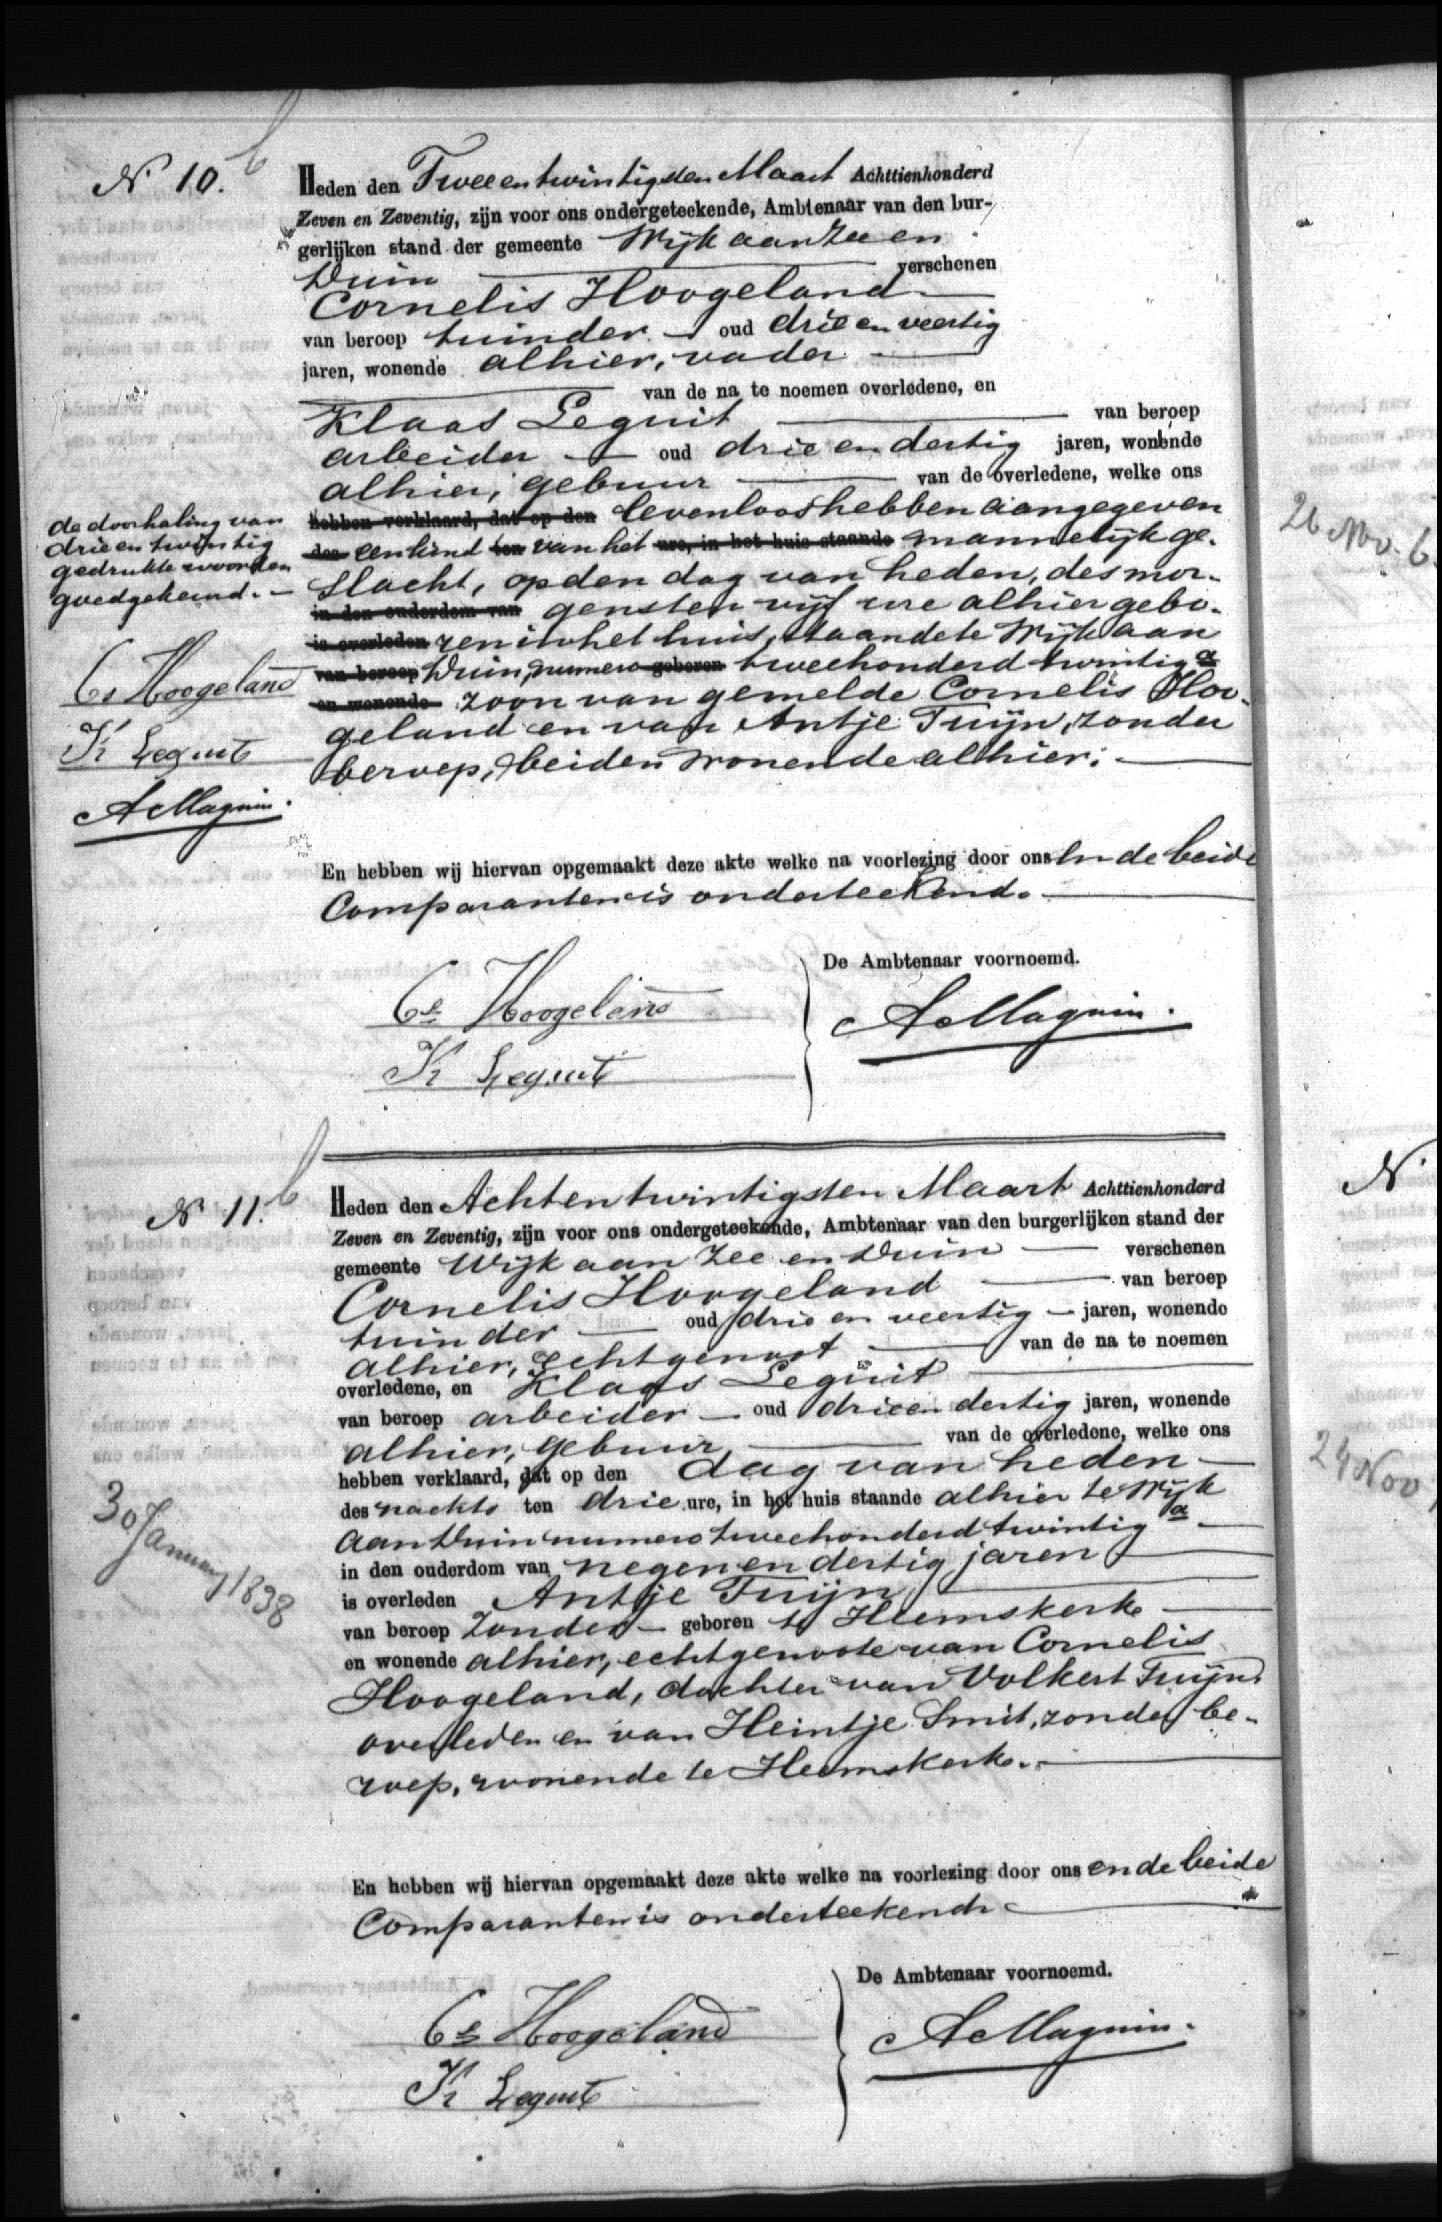 N° 10.
Heden den Tweeentwintigsten Maart Achttienhonderd
Zeven en Zeventig, zijn voor ons ondergeteekende, Ambtenaar van den bur-
gerlijken stand der gemeente Wijk aan Zee en
Duin verschenen
Cornelis Hoogeland
van beroep tuinder oud drie en veertig
jaren, wonende alhier, vader
van de na te noemen overledene, en
Klaas Leguit van beroep
arbeider oud drie en dertig jaren, wonende
alhier, gebuur van de overledene, welke ons
hebben verklaard, dat op den levenloos hebben aangegeven
des een kind ten van het ure, in het huis staande mannelijk ge-
slacht, op den dag van heden, des mor-
in den ouderdom van gensten vijf ure alhier gebo-
is overleden ren in het huis, staande te Wijk aan
van beroep Duin, numero geboren tweehonderd twintig a
en wonende zoon van gemelde Cornelis Hoo-
geland en van Antje Tuijn, zonder
beroep, beiden wonende alhier.
de doorhaling van
drie en twintig
gedrukte woorden
goedgekeurd.
Cs Hoogeland
K Leguit
A Magnin.
En hebben wij hiervan opgemaakt deze akte welke na voorlezing door ons en de beide
Comparanten is onderteekend.
De Ambtenaar voornoemd.
Cs Hoogeland
K Leguit
A Magnin.
N° 11.
Heden den Achtentwintigsten Maart Achttienhonderd
Zeven en Zeventig, zijn voor ons ondergeteekende, Ambtenaar van den burgerlijken stand der
gemeente Wijk aan Zee en Duin verschenen
Cornelis Hoogeland van beroep
tuinder oud drie en veertig jaren, wonende
alhier, echtgenoot van de na te noemen
overledene, en Klaas Leguit
van beroep arbeider oud drie en dertig jaren, wonende
alhier, gebuur van de overledene, welke ons
hebben verklaard, dat op den dag van heden
des nachts ten drie ure, in het huis staande alhier te Wijk
aan Duin numero tweehonderd twintig a
in den ouderdom van negen en dertig jaren
is overleden Antje Tuijn
van beroep zonder geboren te Heemskerk
en wonende alhier, echtgenoote van Cornelis
Hoogeland, dochter van Volkert Tuijn,
overleden en van Heintje Smit, zonder be-
roep, wonende te Heemskerk.
30 January 1838
En hebben wij hiervan opgemaakt deze akte welke na voorlezing door ons en de beide
Comparanten is onderteekend.
De Ambtenaar voornoemd.
Cs Hoogeland
K Leguit
A Magnin.
26 Nov. 6
N
24 Nov